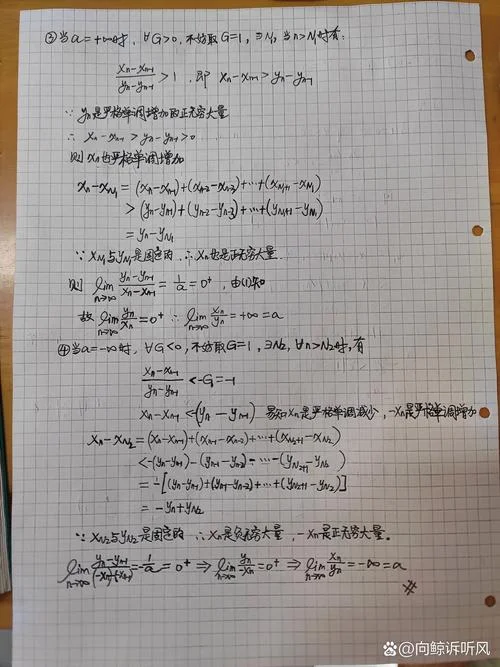 ③当a=+∞时，∀G>0，不妨取G=1，∃N₁，当n>N₁时有:
(xₙ-xₙ₋₁)/(yₙ-yₙ₋₁) >1，即 xₙ-xₙ₋₁>yₙ-yₙ₋₁
∵ yₙ是严格单调增加的正无穷大量
∴ xₙ-xₙ₋₁>yₙ-yₙ₋₁>0
则 xₙ也严格单调增加
xₙ-x_N₁=(xₙ-xₙ₋₁)+(xₙ₋₂-xₙ₋₃)+⋯+(x_N₁₊₁-x_N₁)
>(yₙ-yₙ₋₁)+(yₙ₋₂-yₙ₋₃)+⋯+(y_N₁₊₁-y_N₁)
=yₙ-y_N₁
∵ x_N₁与y_N₁是固定的 ∴xₙ也是正无穷大量.
则 lim n→∞ (yₙ-yₙ₋₁)/(xₙ-xₙ₋₁) = 1/a = 0⁺，由(1)知
故 lim n→∞ yₙ/xₙ=0⁺ ∴ lim n→∞ xₙ/yₙ=+∞=a
④当a=-∞时，∀G<0，不妨取G=1，∃N₂，∀n>N₂时，有
(xₙ-xₙ₋₁)/(yₙ-yₙ₋₁) <-G=-1
xₙ-xₙ₋₁<-(yₙ-yₙ₋₁) 易知xₙ是严格单调减少，-xₙ是严格单调增加
xₙ-x_N₂=(xₙ-xₙ₋₁)+(xₙ₋₁-xₙ₋₂)+⋯+(x_N₂₊₁-x_N₂)
<-(yₙ-yₙ₋₁)-(yₙ₋₁-yₙ₋₂)-⋯-(y_N₂₊₁-y_N₂)
=-[(yₙ-yₙ₋₁)+(yₙ₋₁-yₙ₋₂)+⋯+(y_N₂₊₁-y_N₂)]
=-yₙ+y_N₂
∵ x_N₂与y_N₂是固定的 ∴xₙ是负无穷大量，-xₙ是正无穷大量。
lim n→∞ (yₙ-yₙ₋₁)/(-xₙ-(-xₙ₋₁)) =-1/a=0⁺ ⇒ lim n→∞ yₙ/-xₙ=0⁺ ⇒ lim n→∞ xₙ/yₙ=-∞=a
#
@向鲸诉听风